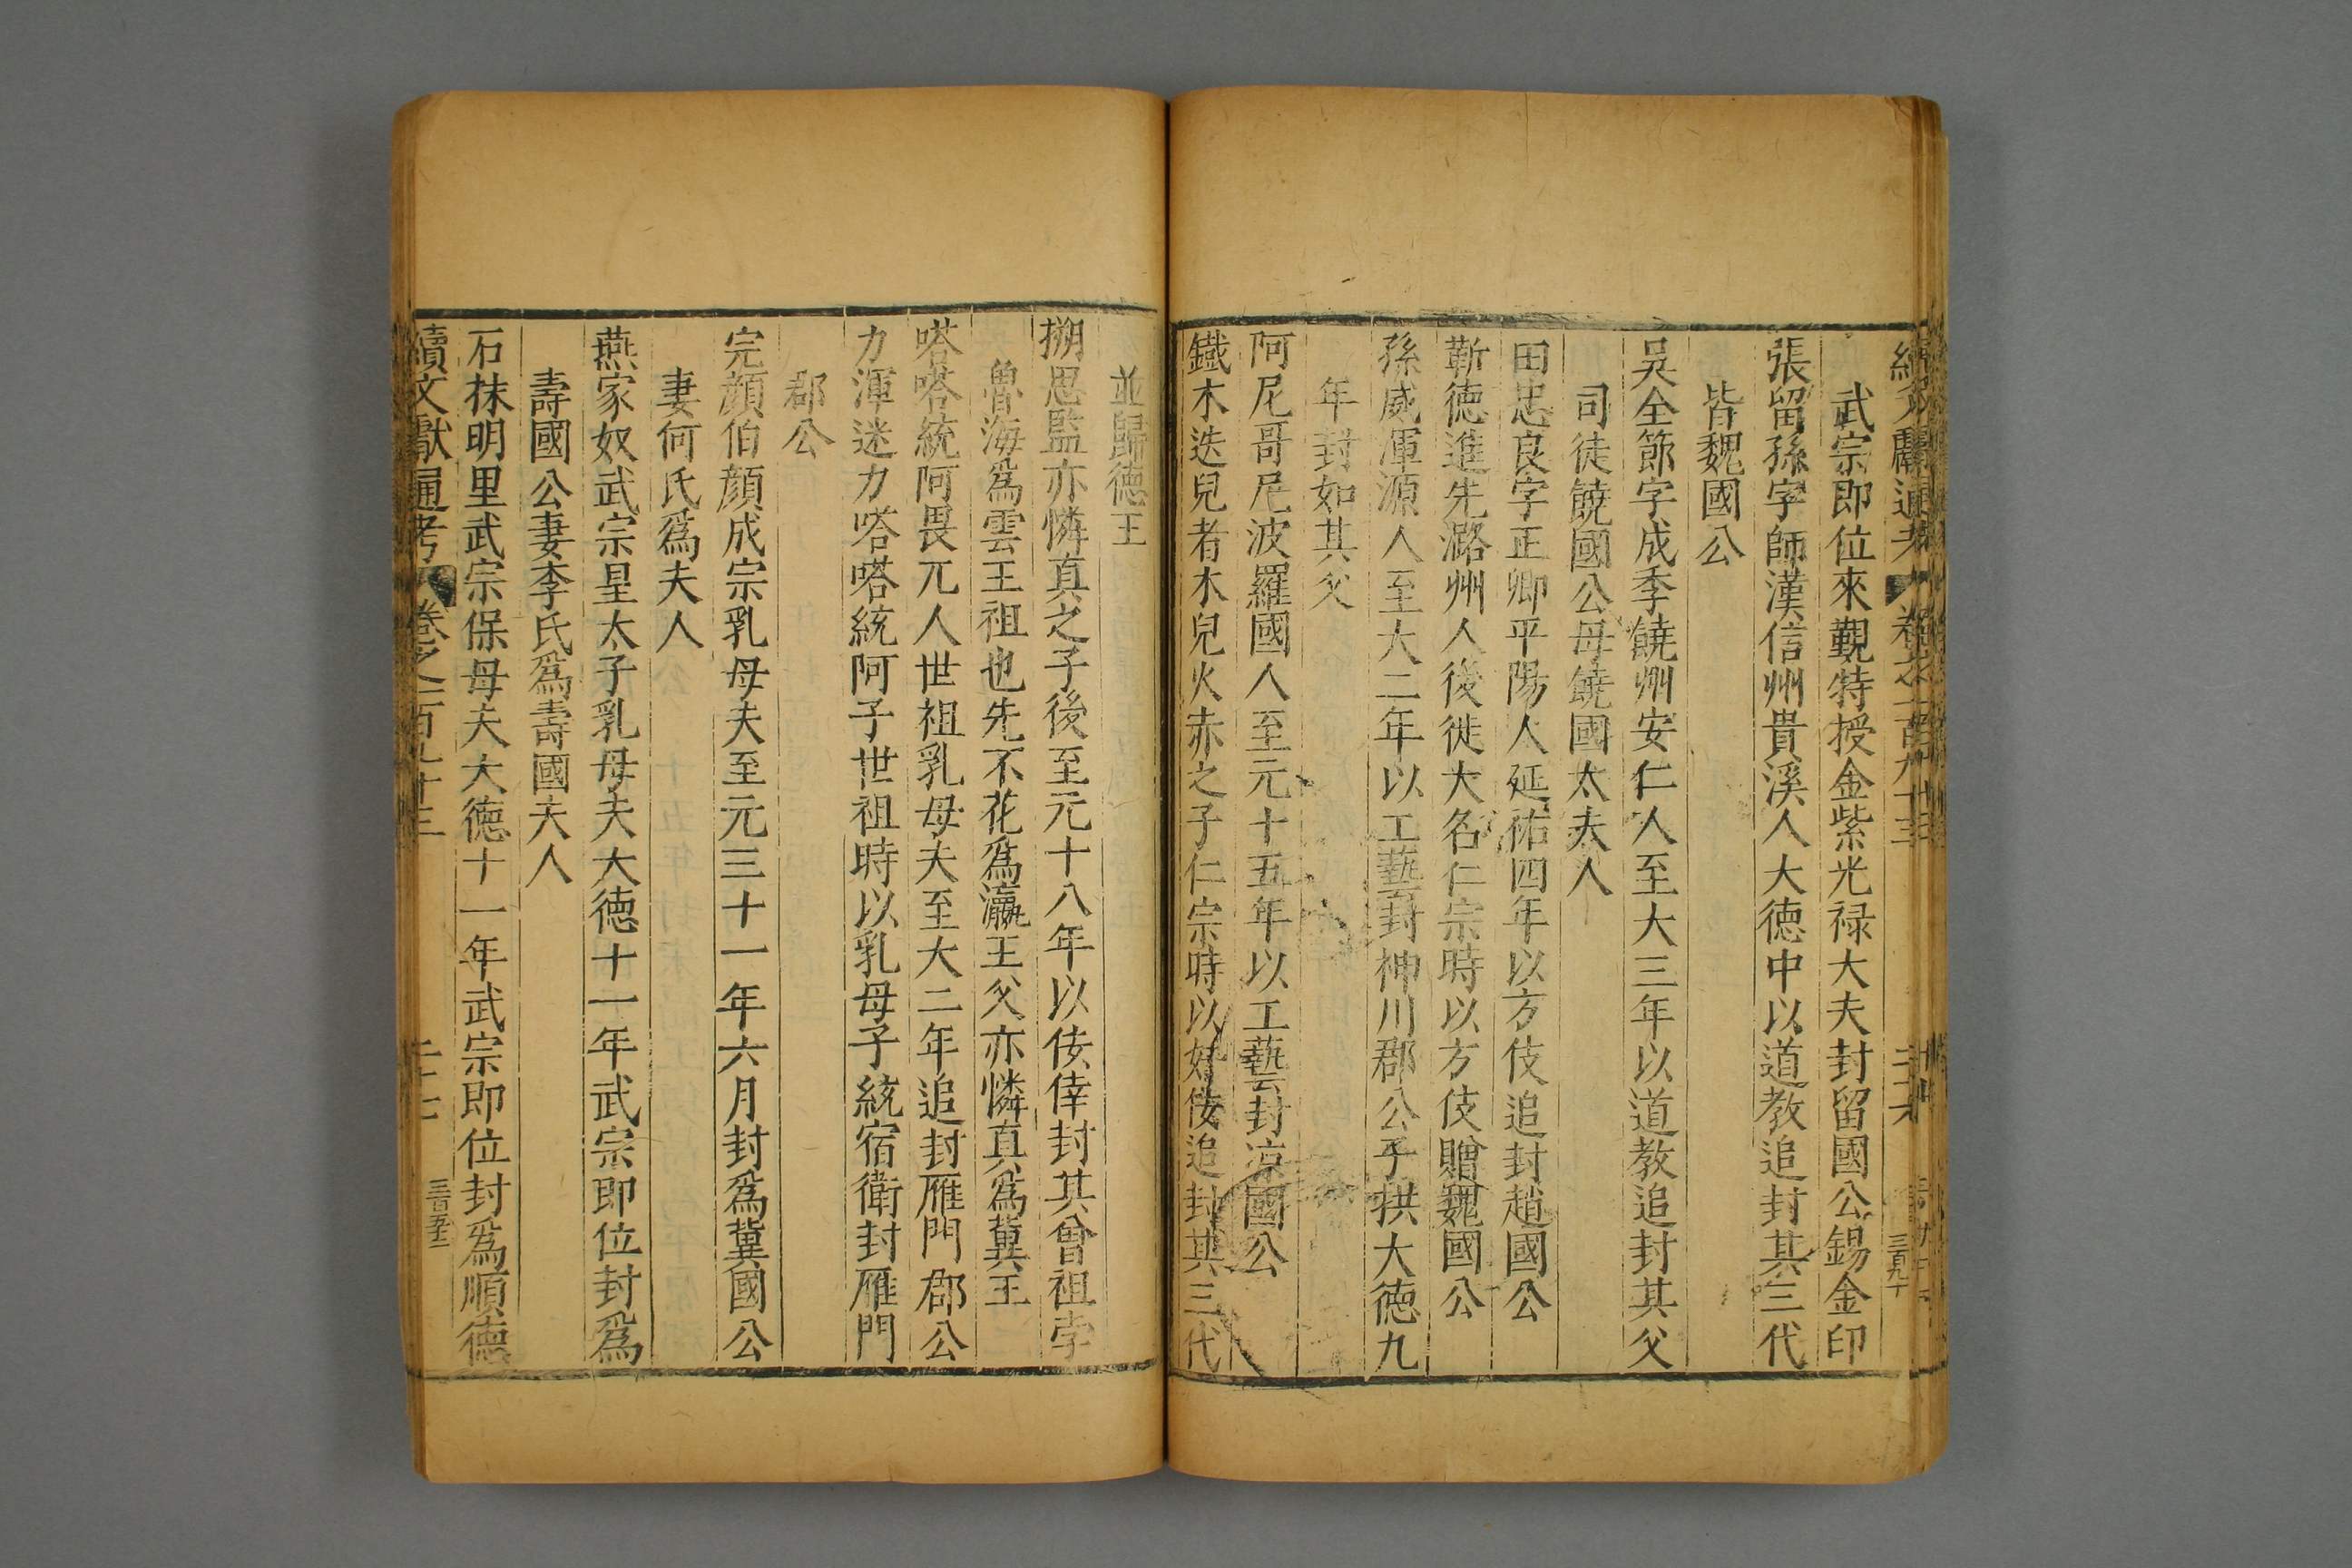 續文獻通考 卷之一百九十三 二十六 三百九十
武宗即位來覲特授金紫光祿大夫封留國公錫金印
張留孫字師漢信州貴溪人大德中以道教追封其三代
皆魏國公
吳全節字成季饒州安仁人至大三年以道教追封其父
司徒饒國公母饒國太夫人
田忠良字正卿平陽人延祐四年以方伎追封趙國公
靳德進先潞州人後徙大名仁宗時以方伎贈魏國公
孫威渾源人至大二年以工藝封神川郡公子拱大德九
年封如其父
阿尼哥尼波羅國人至元十五年以工藝封凉國公
鐡木迭兒者木兒火赤之子仁宗時以奸佞追封其三代
並歸德王
搠思監亦憐真之子後至元十八年以佞倖封其曾祖孛
魯海為雲王祖也先不花為瀛王父亦憐真為冀王
嗒嗒統阿畏兀人世祖乳母夫至大二年追封雁門郡公
力渾迷力嗒嗒統阿子世祖時以乳母子統宿衛封雁門
郡公
完顏伯顏成宗乳母夫至元三十一年六月封為冀國公
妻何氏為夫人
燕家奴武宗皇太子乳母夫大德十一年武宗即位封為
壽國公妻李氏為壽國夫人
石抹明里武宗保母夫大德十一年武宗即位封為順德
續文獻通考 卷之一百九十三 二十七